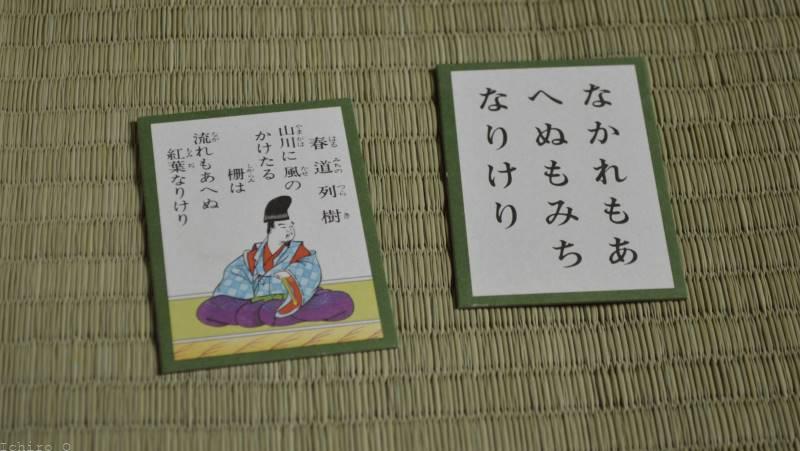 春道列樹
山川に風の
かけたる
柵は
流れもあへぬ
紅葉なりけり
なかれもあ
へぬもみち
なりけり
Ichiro O